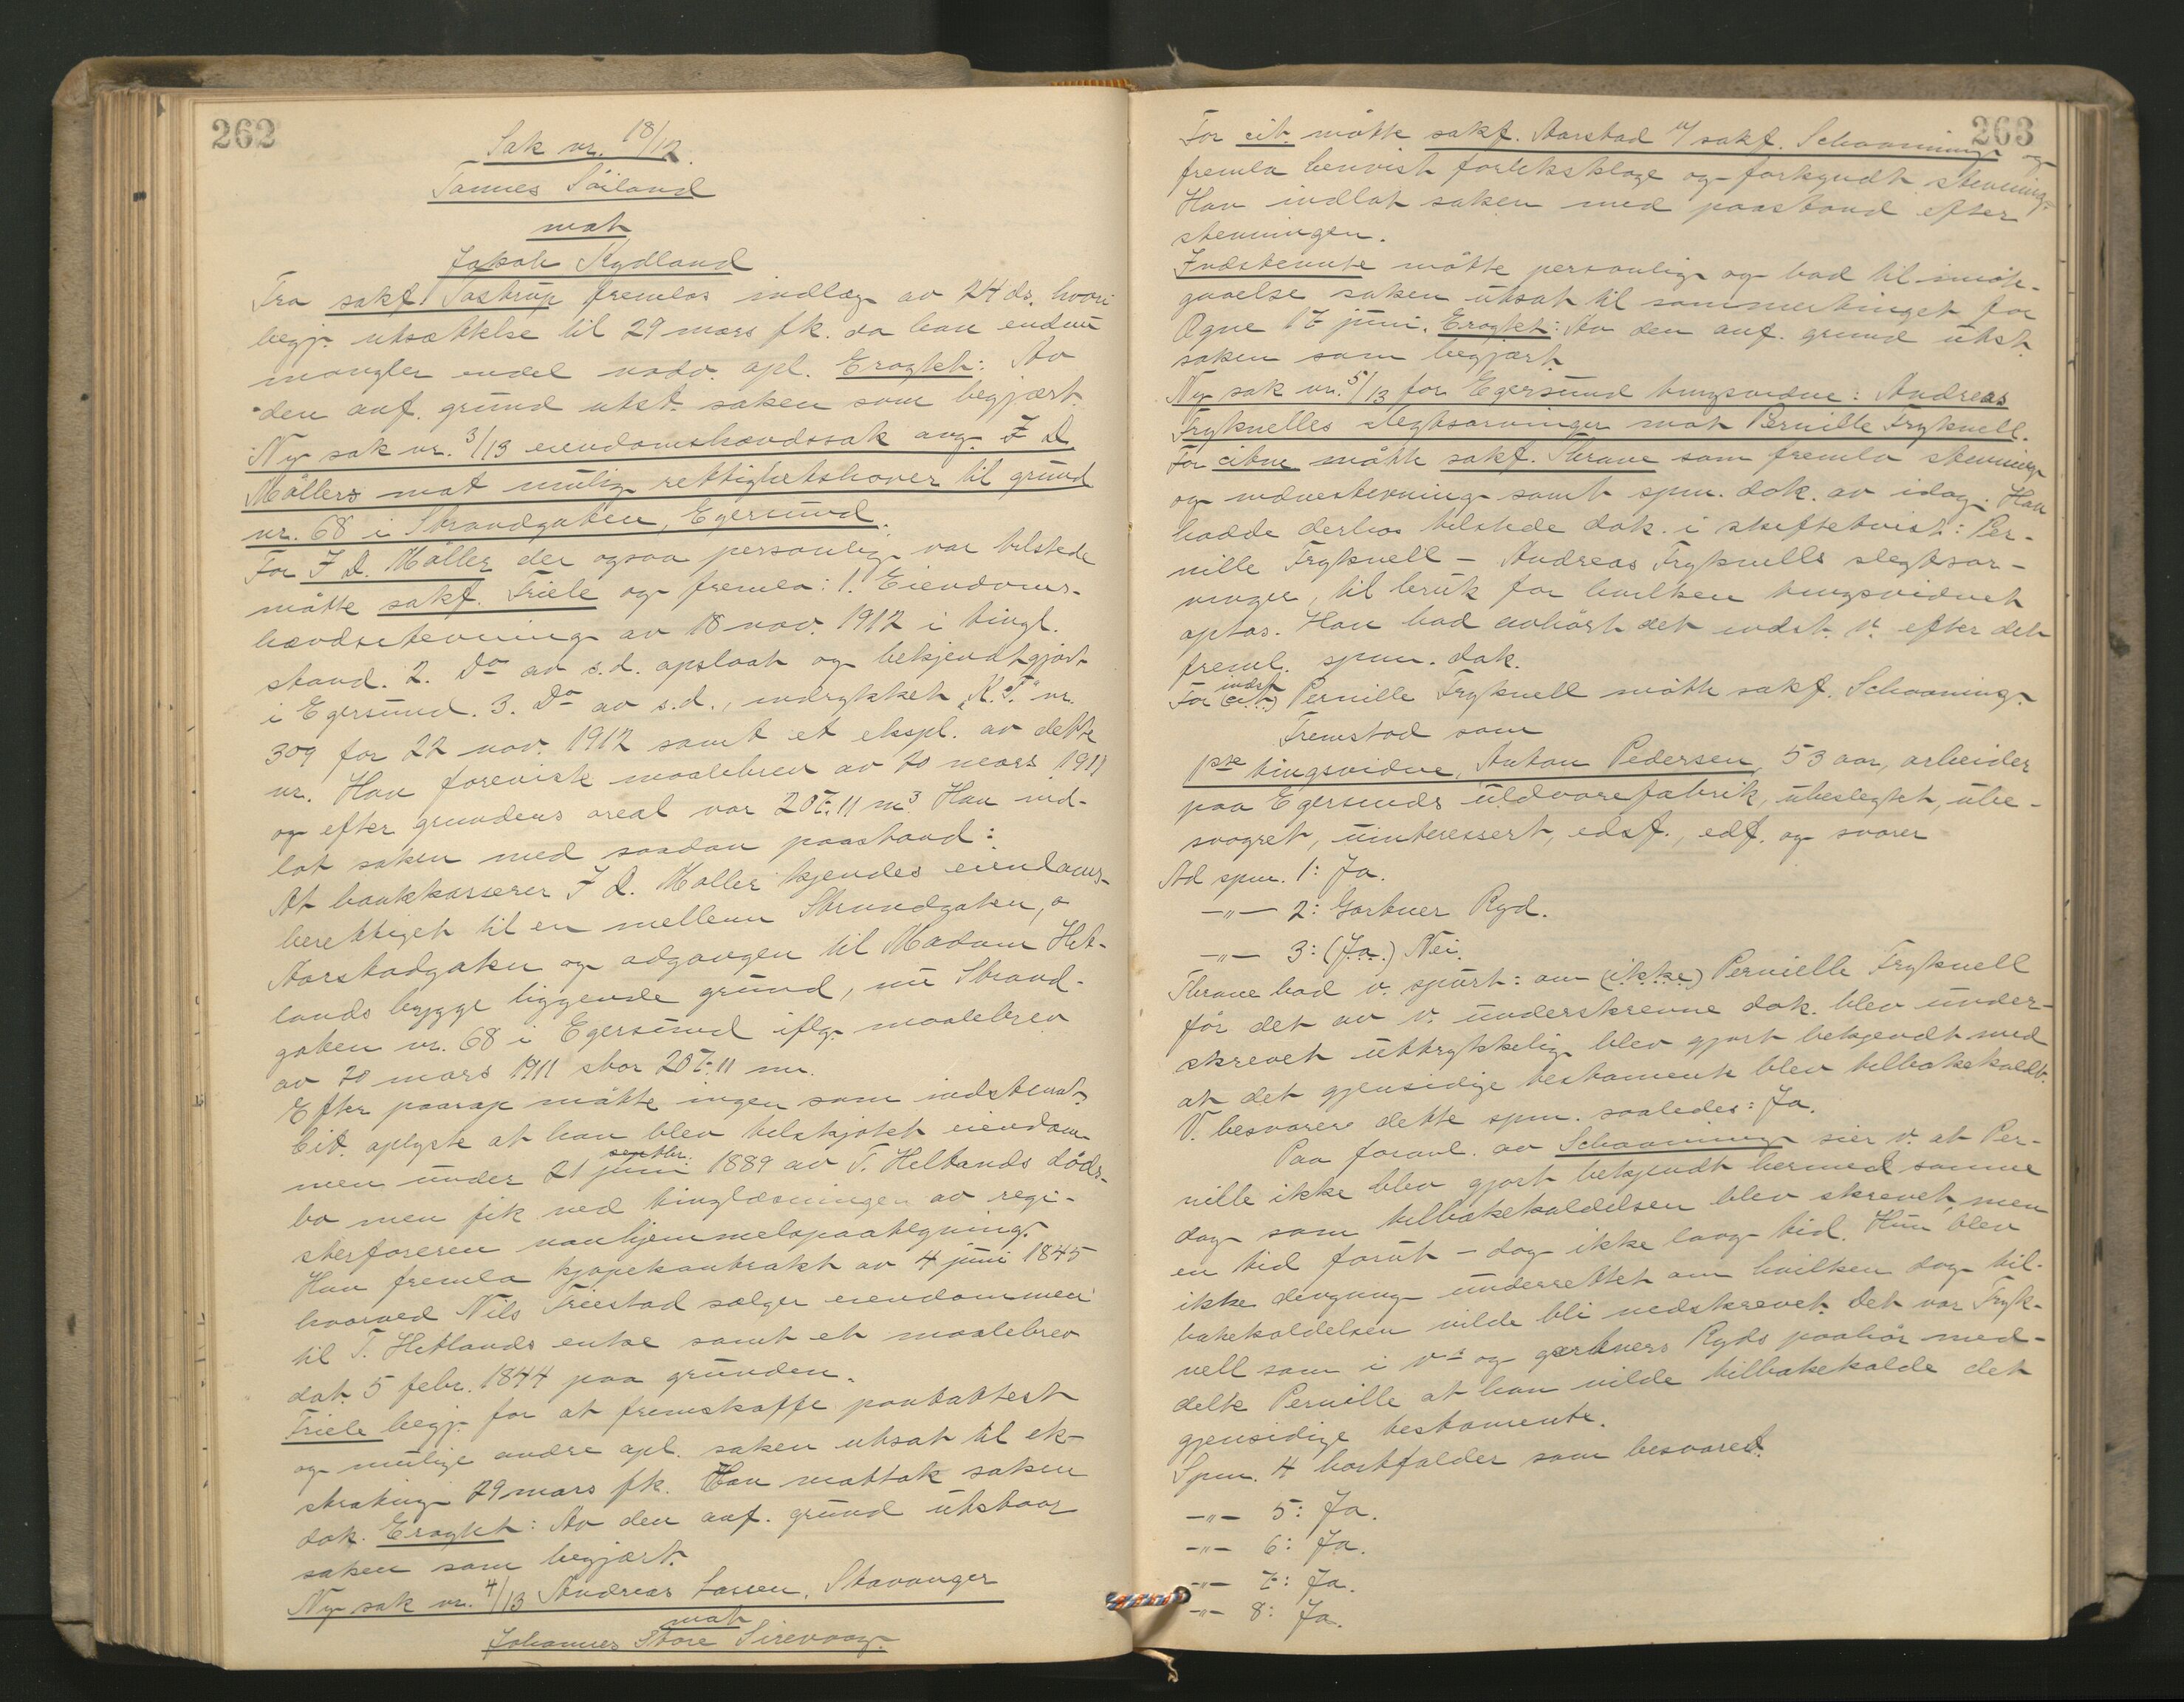 262
Sak nr. 18/12.
Tannes Söiland
mot
Jakob Rydland
Fra sakf. Tastrup fremlas indlæg av 24 ds. hvori
begj. utsættelse til 29 mars fk. da han endnu
mangler endel nødv. opl. Eragtet: Av
den anf. grund utst. saken som begjært.
Ny sak nr. 3/13 eiendomshævdssak ang. F D.
Möllers mot mulig rettighetshaver til grund
nr. 68 i Strandgaten, Egersund.
For F D. Möller der ogsaa personlig var tilstede
mötte sakf. Friele og fremla: 1. Eiendoms-
hævdsstevning av 18 nov. 1912 i tingl.
stand. 2. Do av s.d. opslaat og bekjendtgjort
i Egersund. 3. Do av s.d., indrykket "K.T." nr.
309 for 22 nov. 1912 samt et ekspl. av dette
nr. Han foreviste maalebrev av 20 mars 1911
og efter grundens areal var 207.11 m3 Han ind-
lot saken med saadan paastand:
At bankkasserer F D. Möller kjendes eiendoms-
berettiget til en mellem Strandgaten,
Aarstadgaten og adgangen til Madam Het-
lands brygge liggende grund, nu Strand-
gaten nr. 68 i Egersund iflg. maalebrev
av 20 mars 1911 stor 207.11 m.
Efter paarop mötte ingen som indstevnt.
Cit. oplyste at han blev tilskjötet eiendom-
men under 21 juni septbr. 1889 av T. Hetlands döds-
bo men fik ved tinglæsningen av regi-
sterföreren vanhjemmelspaategning.
Han fremla kjöpekontrakt av 4 juni 1845
hvorved Nils Friestad sælger eiendommen
til T. Hetlands enke samt et maalebrev
dat. 5 febr. 1844 paa grunden.
Friele begj. for at fremskaffe panteattest
og mulige andre opl. saken utsat til ek-
strating 29 mars fk. Han mottok saken
dok. Eragtet: Av den anf. grund utstaar
saken som begjært.
Ny sak nr. 4/13 Andreas Larsen, Stavanger
mot
Johannes Store Sirevaag.
263
For cit. mötte sakf. Aarstad f/ sakf. Schaanning og
fremla henvist forliksklage og forkyndt stevning.
Han indlot saken med paastand efter
stevningen.
Indstevnte mötte personlig og bad til imöte-
gaaelse saken utsat til sommertinget for
Ogne 17 juni. Eragtet: Av den anf. grund utst.
saken som begjært.
Ny sak nr. 5/13 for Egersund tingsvidne: Andreas
Tryknelles slegtsarvinger mot Pernille Tryknell.
For citne mötte sakf. Thrane som fremla stevning
og vidnestevning samt spm. dok. av idag. Han
hadde derhos tilstede dok. i skiftetvist: Per-
nille Tryknell – Andreas Tryknells slegtsar-
vinger, til bruk for hvilken tingsvidnet
optas. Han bad avhört det indst. v. efter det
freml. spm. dok.
For (cit.) indst. Pernille Tryknell mötte sakf. Schaanning.
Fremstod som
1ste tingsvidne, Anton Pedersen, 53 aar, arbeider
paa Egersunds uldvarefabrik, ubeslegtet, ube-
svogret, uinteressert, edsf., edf. og svarer
Ad spm. 1: Ja.
–"– 2: Gartner Ryd.
–"– 3: (Ja.) Nei.
Thrane bad v. spurt: om (ikke) Pernille Tryknell
för det av v. underskrevne dok. blev under-
skrevet uttrykkelig blev gjort bekjendt med
at det gjensidige testamente blev tilbakekaldt.
V. besvarer dette spm. saaledes: Ja.
Paa foranl. av Schaanning sier v. at Per-
nille ikke blev gjort bekjendt hermed samme
dag som tilbakekaldelsen blev skrevet, men
en tid forut – dog ikke lang tid. Hun blev
ikke dengang underrettet om hvilken dag til-
bakekaldelsen vilde bli nedskrevet. Det var Tryk-
nell som i v's og gartners Ryds paahör med-
delte Pernille at han vilde tilbakekalde det
gjensidige testamente.
Spm. 4 bortfalder som besvaret.
–"– 5: Ja.
–"– 6: Ja.
–"– 7: Ja.
–"– 8: Ja.